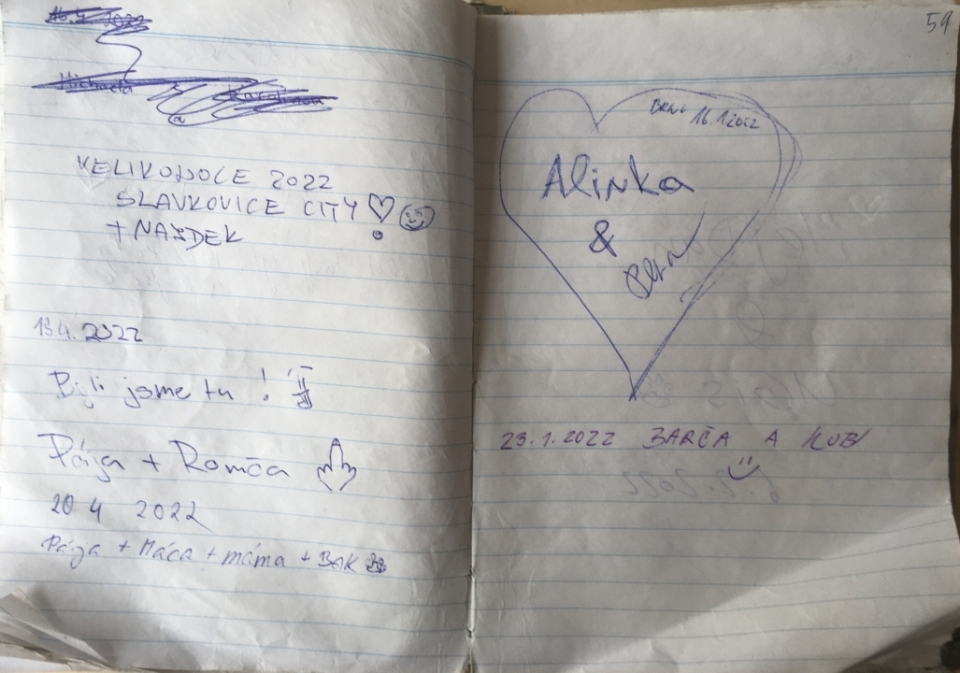 VELIKONOCE 2022
SLAVKOVICE CITY
+ NAJDEK
2022
Byli jsme tu !
Pája + Romča
20 4 2022
Pája + Máca + máma + BAK
59
BRNO 16.1.2022
Alinka
&
23.1.2022 BARČA A KUBA